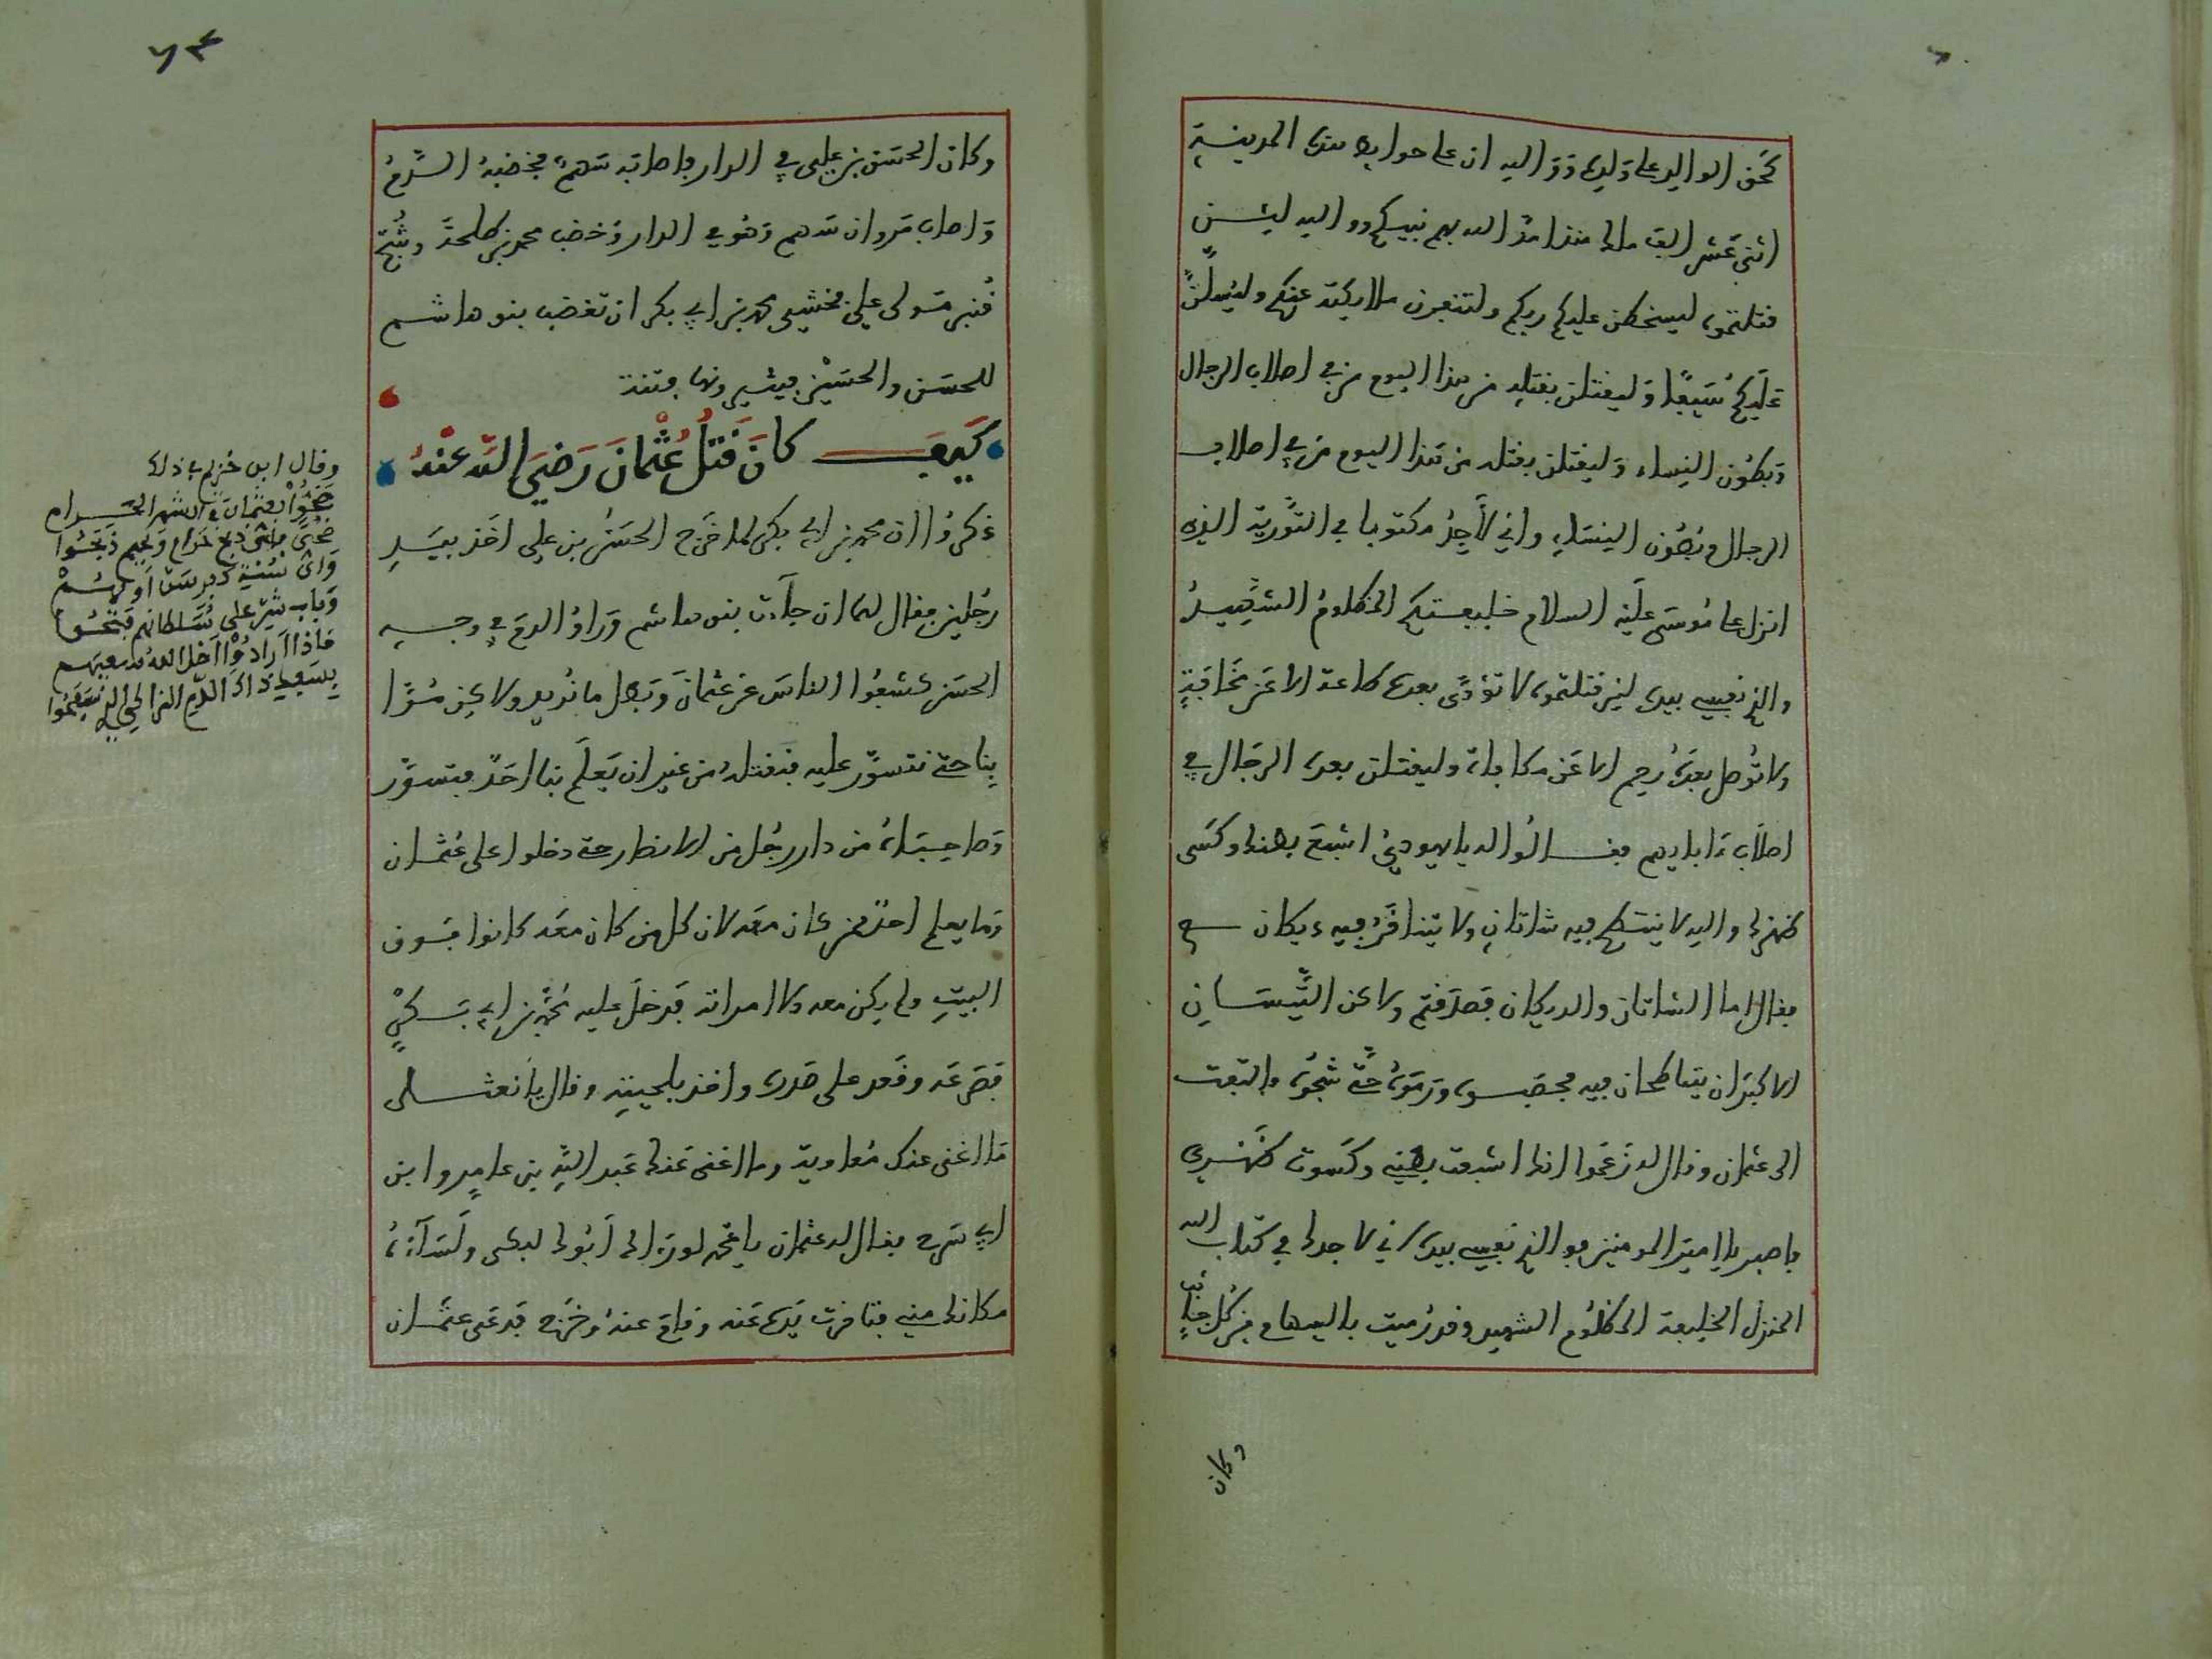 كحق الوالد على ولده ووالله ان على حواىط هذه المدينة
اثنى عشر الف ملك منذ امد الله بهم نبيكم ووالله لئن
قتلتموه ليسخطن عليكم ربكم ولتنفرن ملايكته عنكم وليسلن
عليكم سيفا وليقتلن بقتله من هذا اليوم من في اصلاب الرجال
وبطون النساء وليقتلن بقتله من هذا اليوم من في اصلاب
الرجال وبطون النساء واني لأجد مكتوبا في التورية الذي
انزل على موسى عليه السلام خليفتكم المظلوم الشهيد
والذي نفسي بيده لين قتلتموه لا تؤدى بعده طاعة الا عن مخافة
ولا توصل بعده رحم الا عن مكافاة وليقتلن بعده الرجال في
اصلاب ءابايهم فقالوا له يا يهودي اشبع بطنك وكسى
ظهرك والله لا ينتطح فيه شاتان ولا يتناقر فيه ديكان
فقال اما الشاتان والديكان فصدقتم ولاكن التيسان
الاكبران يتناطحان فيه فحصبوه ورموه حتى شجوه والتفت
الى عثمان وقال له زعموا انك اشبعت بطني وكسوت ظهري
فاصبر يا امير المومنين فو الذي نفسي بيده اني لاجدك في كتاب الله
المنزل الخليفة المظلوم الشهيد وقد رميت بالسهام من كل جانب
وكان
وكان الحسن بن علي في الدار فاصابه سهم فخضبه الدم
واصاب مروان سهم وهو في الدار وخضب محمد بن طلحة وشج
قنبر مولى علي فخشي محمد بن ابي بكر ان تغضب بنو هاشم
للحسن والحسين فيثيرونها فتنة
كيف كان قتل عثمان رضي الله عنه
ذكروا ان محمد بن ابي بكر لما خرج الحسن بن علي اخذ بيد
رجلين فقال لهما ان جاءت بنو هاشم وراوا الدم في وجه
الحسن كشفوا الناس عن عثمان وبطل ما نريد ولاكن مروا
بنا حتى نتسور عليه فنقتله من غير ان يعلم بنا احد فتسور
وصاحباه من دار رجل من الانصار حتى دخلوا على عثمان
وما يعلم احد من كان معه لان كل من كان معه كانوا فوق
البيت ولم يكن معه الا امراته فدخل عليه محمد بن ابي بكر
فصرعه وقعد على صدره واخذ بلحيته وقال يا نعثل
ما اغنى عنك معاوية وما اغنى عنك عبد الله بن عامر وابن
ابي سرح فقال له عثمان يا محمد لو رءاك ابوك لبكى ولساءه
مكانك مني فتراخت يده عنه وقام عنه وخرج فدعى عثمان
وقال ابن حزم في ذلك
ضحوا بعثمان في الشهر الحرام
ضحى فاي ذبح حرام ويحهم ذبحوا
واي سنة كفر سن اولهم
وباب شر على سلطانهم فتحوا
ماذا ارادوا اضل الله سعيهم
بسفك ذاك الدم الزاكي الذي سفحوا